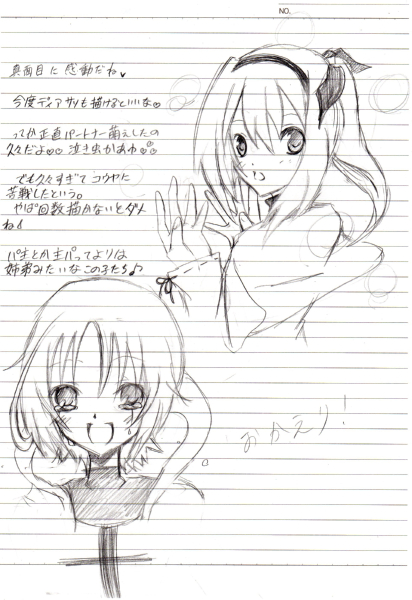 NO.
真面目に感動だね♥
今度ディアサイも描けるといいな♡
ってか正直パートナー萌えしたの
久々だよ♡♡ 泣き虫かあゆ♡
でも久々すぎてコウヤに
苦戦したという。
やぱ回数描かないとダメ
ね
パ主とか主パってよりは
姉弟みたいなこの子たち♪
おかえり!